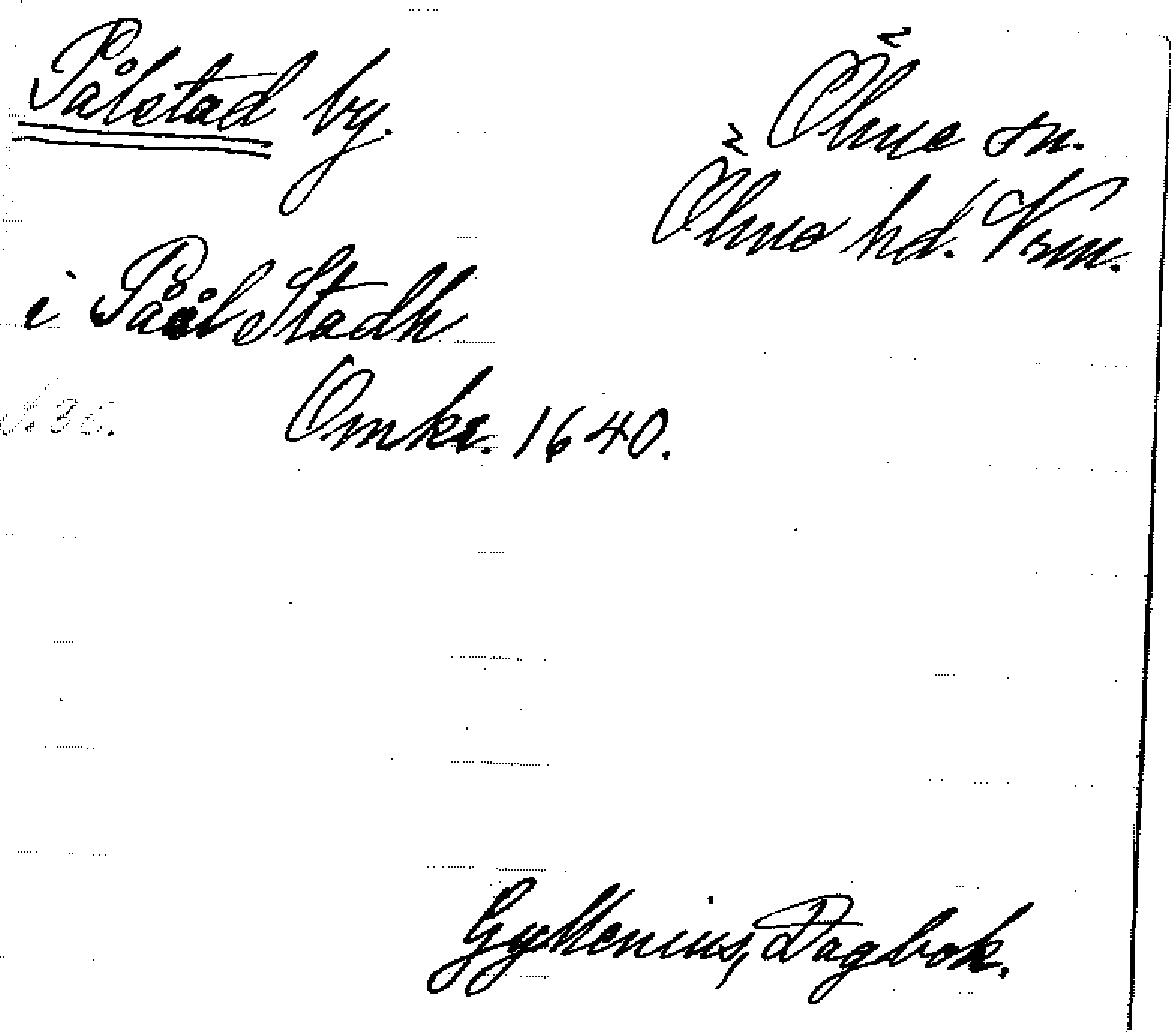 Pålstad by.
Ölme sn.
Ölme hd. Vrm.
i Påål Stadh
Omkr. 1640.
Gyllenius, Dagbok.